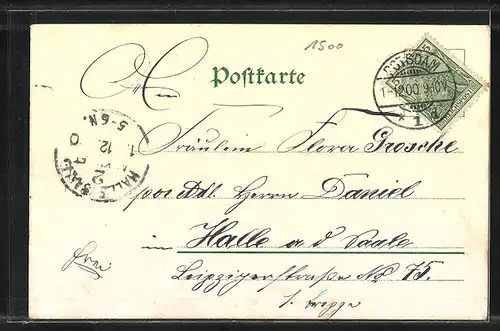 1500
Postkarte
An
POTSDAM
1-12.00.9-10V.
* 1 *
Fräulein Flora Grosche
per Adr. Herrn Daniel
in Halle a d Saale
Leipzigerstraße No 75.
1. Treppe
frei
HALLE (SAALE)
5-6N.
1. 12.